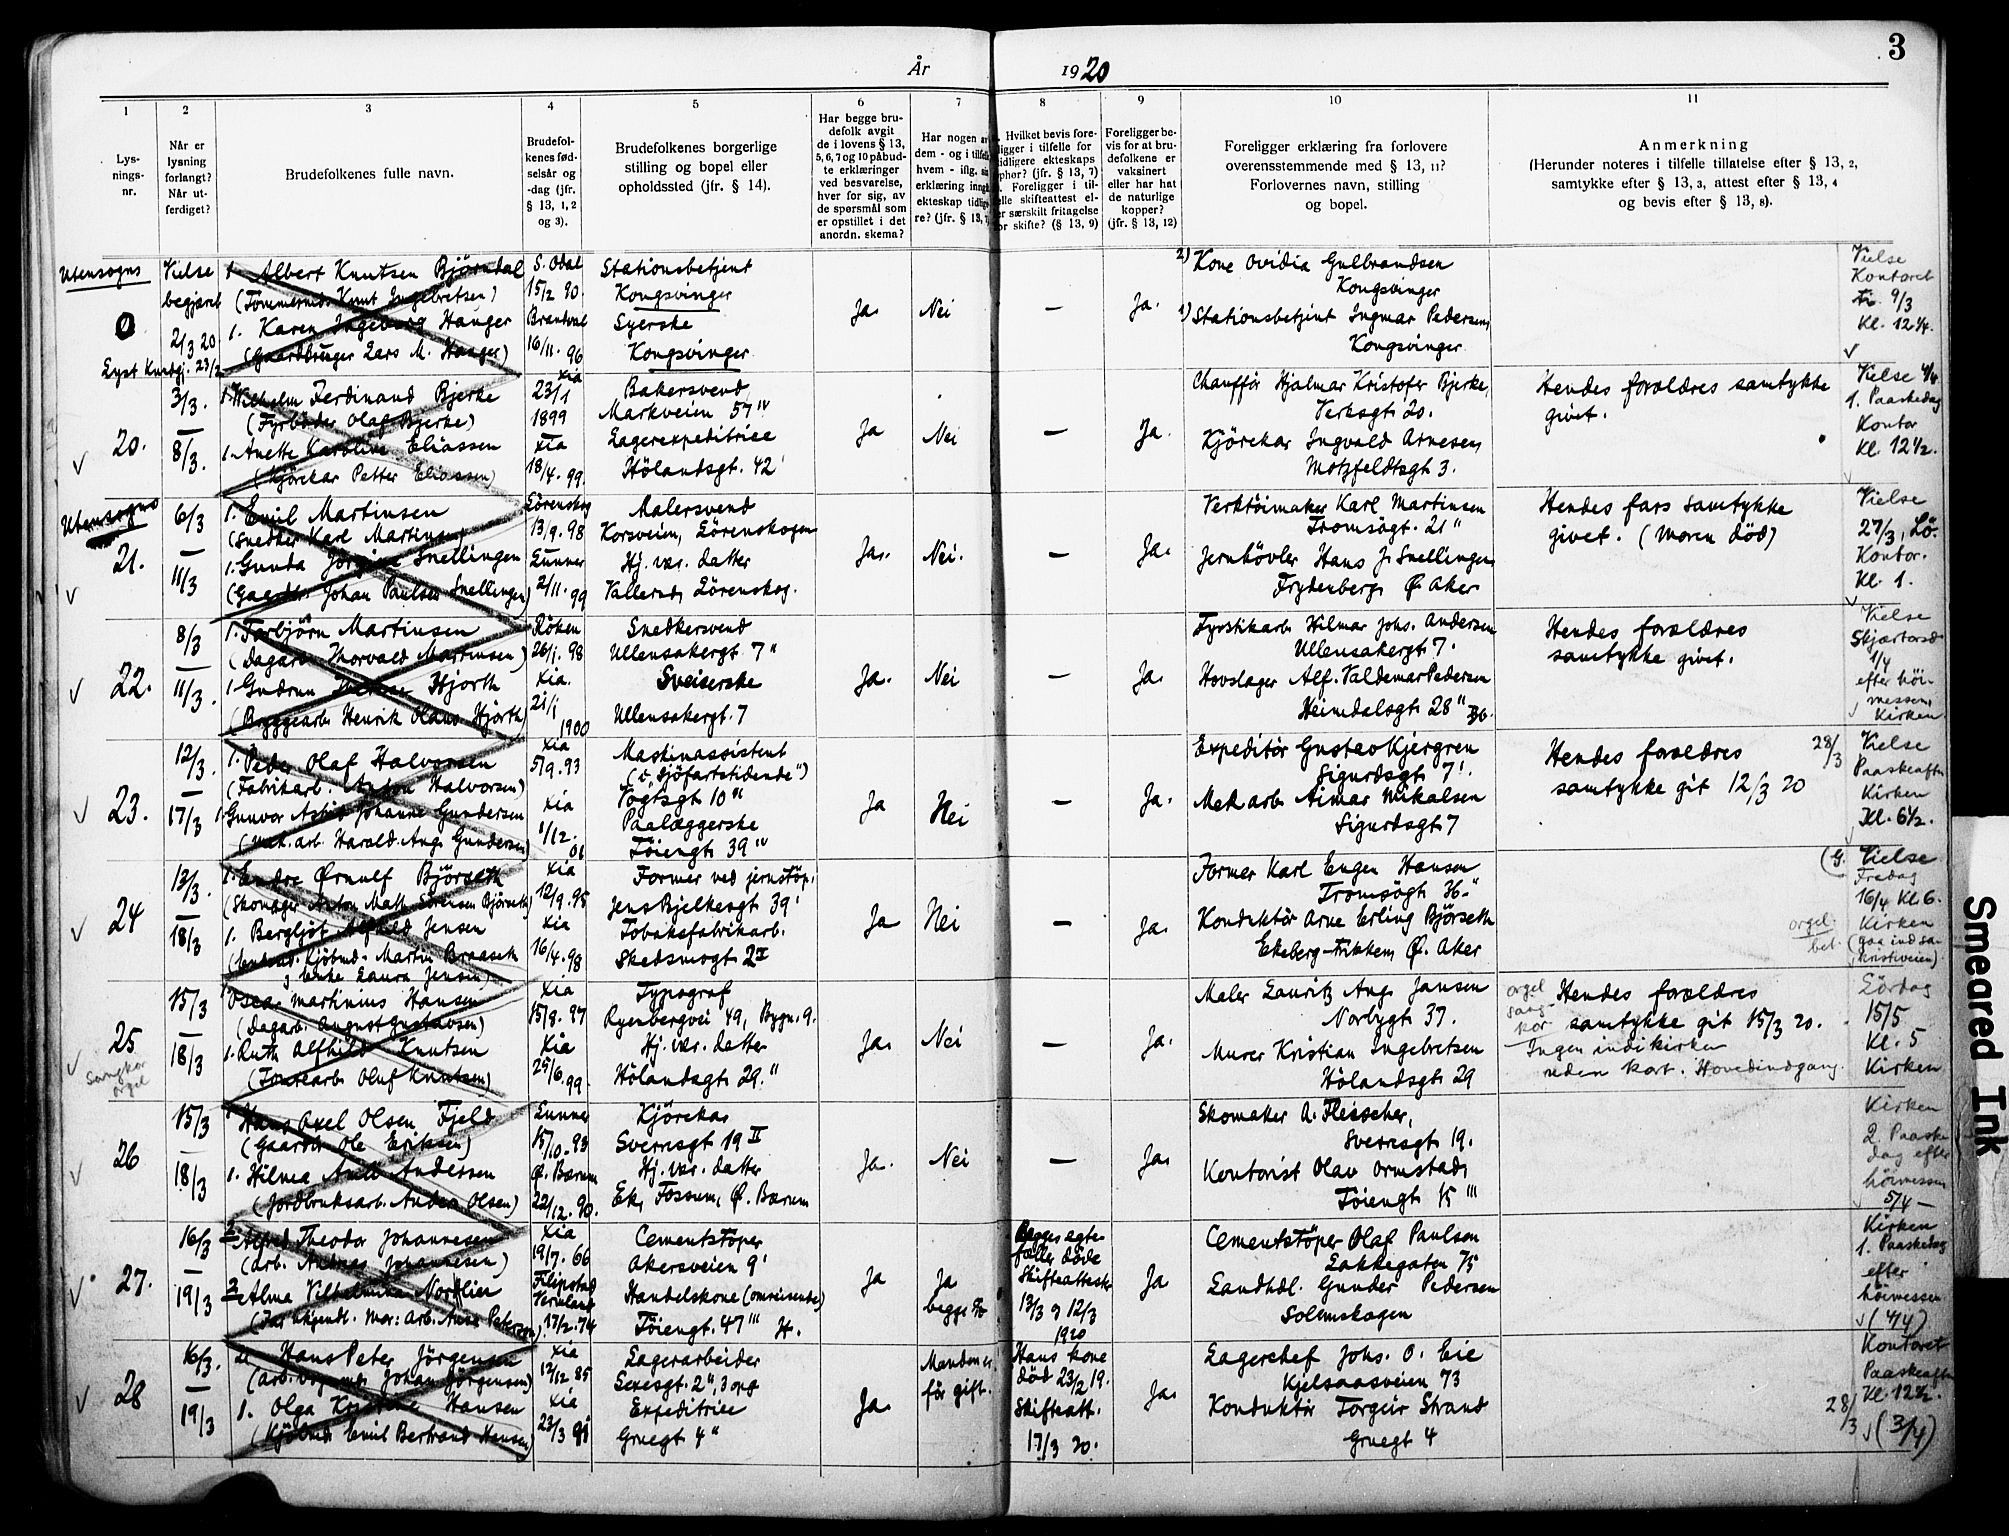 3
År 1920
1
2
3
4
5
6
7
8
9
10
11
Lys-
nings-
nr.
Når er
lysning
forlangt?
Når ut-
ferdiget?
Brudefolkenes fulle navn.
Brudefol-
kenes fød-
selsår og
-dag (jfr.
§ 13, 1, 2
og 3).
Brudefolkenes borgerlige
stilling og bopel eller
opholdssted (jfr. § 14).
Har begge bru-
defolk avgit
de i lovens § 13,
5, 6, 7 og 10 påbud-
te erklæringer
ved besvarelse,
hver for sig, av
de spørsmål som
er opstillet i det
anordn. skema?
Har nogen av
dem - og i tilfelle
hvem - iflg. sin
erklæring inngått
ekteskap tidlige-
re? (jfr. § 13,
Hvilket bevis fore-
ligger i tilfelle for
tidligere ekteskaps
ophør? (jfr. § 13, 7)
Foreligger i til-
felle skifteattest el-
ler særskilt fritagelse
for skifte? (§ 13, 9)
Foreligger be-
vis for at bru-
defolkene er
vaksinert
eller har hat
de naturlige
kopper?
(jfr. § 13, 12)
Foreligger erklæring fra forlovere
overensstemmende med § 13, 11?
Forlovernes navn, stilling
og bopel.
Anmerkning
(Herunder noteres i tilfelle tillatelse efter § 13, 2,
samtykke efter § 13, 3, attest efter § 13, 4
og bevis efter § 13, 8).
Utensogns
0
Vielse
begjæret
2/3 20
Lyst Kundgj. 23/2
1. Albert Knutsen Björndal
(Tömmermd. Knut Ingebretsen)
1. Karen Ingeborg Hanger
(Gaardbruger Lars M. Hanger)
S. Odal
15/2 90.
Brandval
16/11. 96
Stationsbetjent
Kongsvinger
Syerske
Kongsvinger
Ja.
Nei
—
Ja.
2) Kone Ovidia Gulbrandsen
Kongsvinger
1) Stationsbetjent Ingmar Pedersen,
Kongsvinger
Vielse
Kontoret
tir. 9/3
Kl. 12 1/4.
20.
3/3.
8/3.
1. Wilhelm Ferdinand Bjerke
(Fyrböder Olaf Bjerke)
1. Anette Karoline Eliassen
(Kjörekar Petter Eliassen)
Xia
23/1
1899
Xia
18/4. 99.
Bakersvend
Markveien 57 IV
Lagerexpeditrice
Hölandsgt. 42'
Ja
Nei
—
Ja.
Chaufför Hjalmar Kristofer Bjerke,
Verksgt. 20.
Kjörekar Ingvald Arnesen,
Motzfeldtsgt 3.
Hendes forældres samtykke
givet.
Vielse 4/4
1. Paaskedag
Kontor
Kl. 12 1/2.
Utensogns
21.
6/3
11/3
1. Emil Martinsen
(Snedker Karl Martinsen)
1. Gunda Jörgine Snellingen
(Gaardbr. Johan Paulsen Snellingen)
Lörenskog
13/9. 98
Lunner
2/11. 99
Malersvend
Korsveien, Lörenskogen
Hj. vær. datter
Vallerud, Lörenskog.
Ja.
Nei.
—
Ja.
Verktöimaker Karl Martinsen
Tromsögt. 21"
Jernhövler Hans J. Snellingen
Frydenberg, Ø. Aker
Hendes fars samtykke
givet. (Moren död)
Vielse
27/3, Lö.
Kontor.
Kl. 1.
22.
8/3
11/3.
1. Torbjörn Martinsen
(Dagarb. Thorvald Martinsen)
1. Gudrun Hjorth
(Bryggearb. Henrik Olaus Hjorth)
Röken
26/1. 98
Xia.
21/1
1900
Snedkersvend
Ullensakergt. 7"
Sveiserske
Ullensakergt. 7
Ja.
Nei
—
Ja.
Fyrstikarb. Hilmar Johs. Andersen
Ullensakergt 7.
Hovslager Alf. Valdemar Pedersen
Heimdalsgt. 28"
Hendes forældres
samtykke givet.
Vielse
Skjærtorsd.
1/4
efter höi-
messen,
Kirken
23.
12/3.
17/3
1. Peder Olaf Halvorsen
(Fabrikarb. Anton Halvorsen)
1. Gunvor Astrid Johanne Gundersen
(Mek. arb. Harald Aug. Gundersen)
Xia
5/9. 93
Xia
1/12.
01
Maskinassistent
(i "Sjöfartstidende")
Vogtsgt. 10"
Paalæggerske
Töiengt. 39 IV
Ja
Nei
—
Ja.
Expeditör Gustav Kjergren
Sigurdsgt. 7'.
Mek arb. Aimar Mikalsen
Sigurdsgt 7
Hendes forældres
samtykke git 12/3 20
28/3
Vielse
Paaskeaften
Kirken
Kl. 6 1/2.
24
13/3.
18/3
1. Endre Ørnulf Björseth
(Skomager Anton Math. Sörensen Björseth)
1. Bergljot Alfhild Jensen
(Ungkarl Kjöbmd. Martin Braaseth
og Enke Laura Jensen)
Xia
12/9. 95
Xia
16/4. 98
Former ved jernstöp.
Jens Bjelkesgt 39'
Tobaksfabrikarb.
Skedsmogt 2 II
Ja
Nei
—
Ja.
Former Karl Eugen Hansen
Tromsögt. 36."
Konduktör Arne Erling Björseth
Ekeberg, Ø. Aker
Vielse
Fredag
16/4 Kl 6.
Kirken
orgel
bet.
25
Sangkor
orgel
15/3
18/3
Oscar Martinius Hansen
(Dagarb. August Gustavsen)
1. Ruth Alfhild Knutsen
(Tomtearb. Oluf Knutsen)
Xia
15/8. 97
Xia
25/6. 99.
Typograf
Ryenbergvei 49, Bygn. 9.
Hj. vær. datter
Hölandsgt. 29."
Ja.
Nei
—
Ja.
Maler Lauritz Aug. Jansen
Norbygt. 37.
Murer Kristian Ingebretsen
Hölandsgt. 29
orgel
sang
kor
Hendes forældres
samtykke git 15/3 20.
Ingen ind i kirken
uden kort. Hovedindgang.
Lördag
15/5
Kl. 5
Kirken
26
15/3
18/3
Hans Axel Olsen Fjeld
(Gaardbr. Ole Eriksen)
1. Hilma Andersen
(Jordbruksarb. Anders Olsen)
Lunner
15/10. 93
Ø. Bærum
22/12. 90.
Kjörekar
Sverresgt. 19 II
Hj. vær. datter
Ek, Fossum, Ø. Bærum
Ja.
Nei
—
Ja.
Skomaker A. Fleischer,
Sverresgt. 19.
Kontorist Olav Ormstad,
Töiengt. 15 III
Kirken
2. Paaske
dag efter
höimessen
5/4 —
27.
16/3
19/3
2. Alfred Theodor Johannesen
(Arb. Andreas Johannesen)
2. Alma Vilhelmina Nordlien
Xia
19/7. 66
Filipstad
Vermland
17/2. 74
Cementstöper
Akersveien 9'
Handelskone (omreisende)
Töiengt. 47 III H.
Ja
Ja
begge
Begges egte-
fæller döde
Skifteattester
13/3 og 12/3
1920
Ja
Cementstöper Olaf Paulsen
Lakkegaten 75
Landhdl. Gunder Pedersen
Solemskogen
Kirken
1. Paaskedag
efter
höimessen
(4/4)
28
16/3.
19/3
2. Hans Peter Jörgensen
(Johan Jörgensen)
1. Olga Hansen
(Kjöbmd. Emil Bertrand Hansen)
Xia
12/12 85
Xia
23/3 98
Lagerarbeider
Sexesgt. 2", 3 opg
Expeditrice
Gruegt 4"
Ja.
Manden er
för gift.
Hans kone
död 23/2 19.
Skifteatt.
17/3 20.
Ja.
Lagerchef Johs. O. Lie
Kjelsaasveien 73
Konduktör Torgeir Strand
Gruegt 4
Kontoret
Paaskeaften
Kl. 12 1/2.
28/3
(3/4)
Smeared Ink